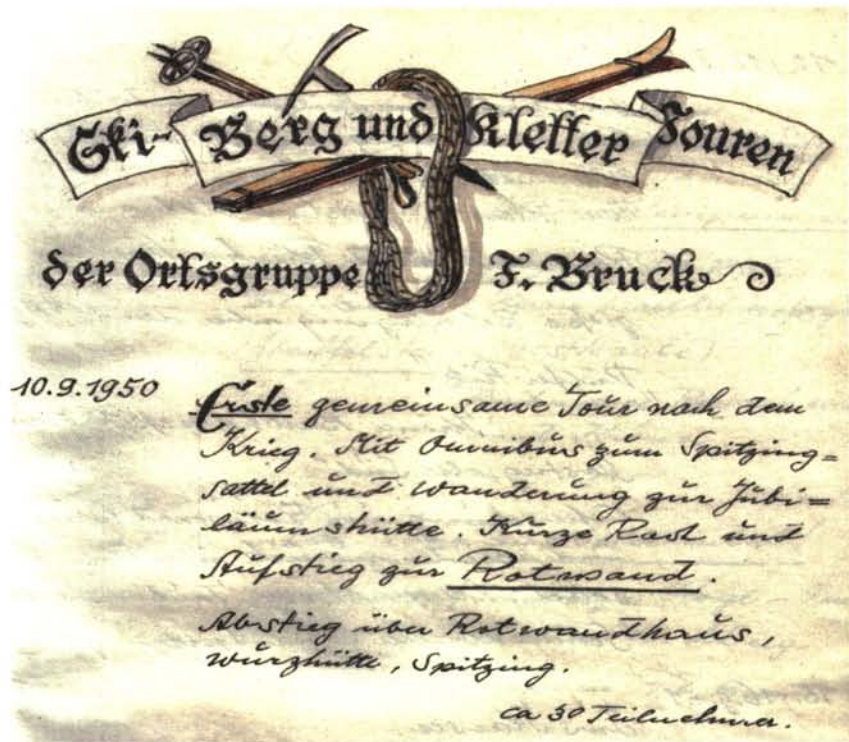 Ski- Berg und Kletter Touren
der Ortsgruppe F. Bruck
10.9.1950 Erste gemeinsame Tour nach dem
Krieg. Mit Omnibus zum Spitzing=
sattel und Wanderung zur Jubi=
läumshütte. Kurze Rast und
Aufstieg zur Rotwand.
Abstieg über Rotwandhaus,
Wurzhütte, Spitzing.
ca 30 Teilnehmer.